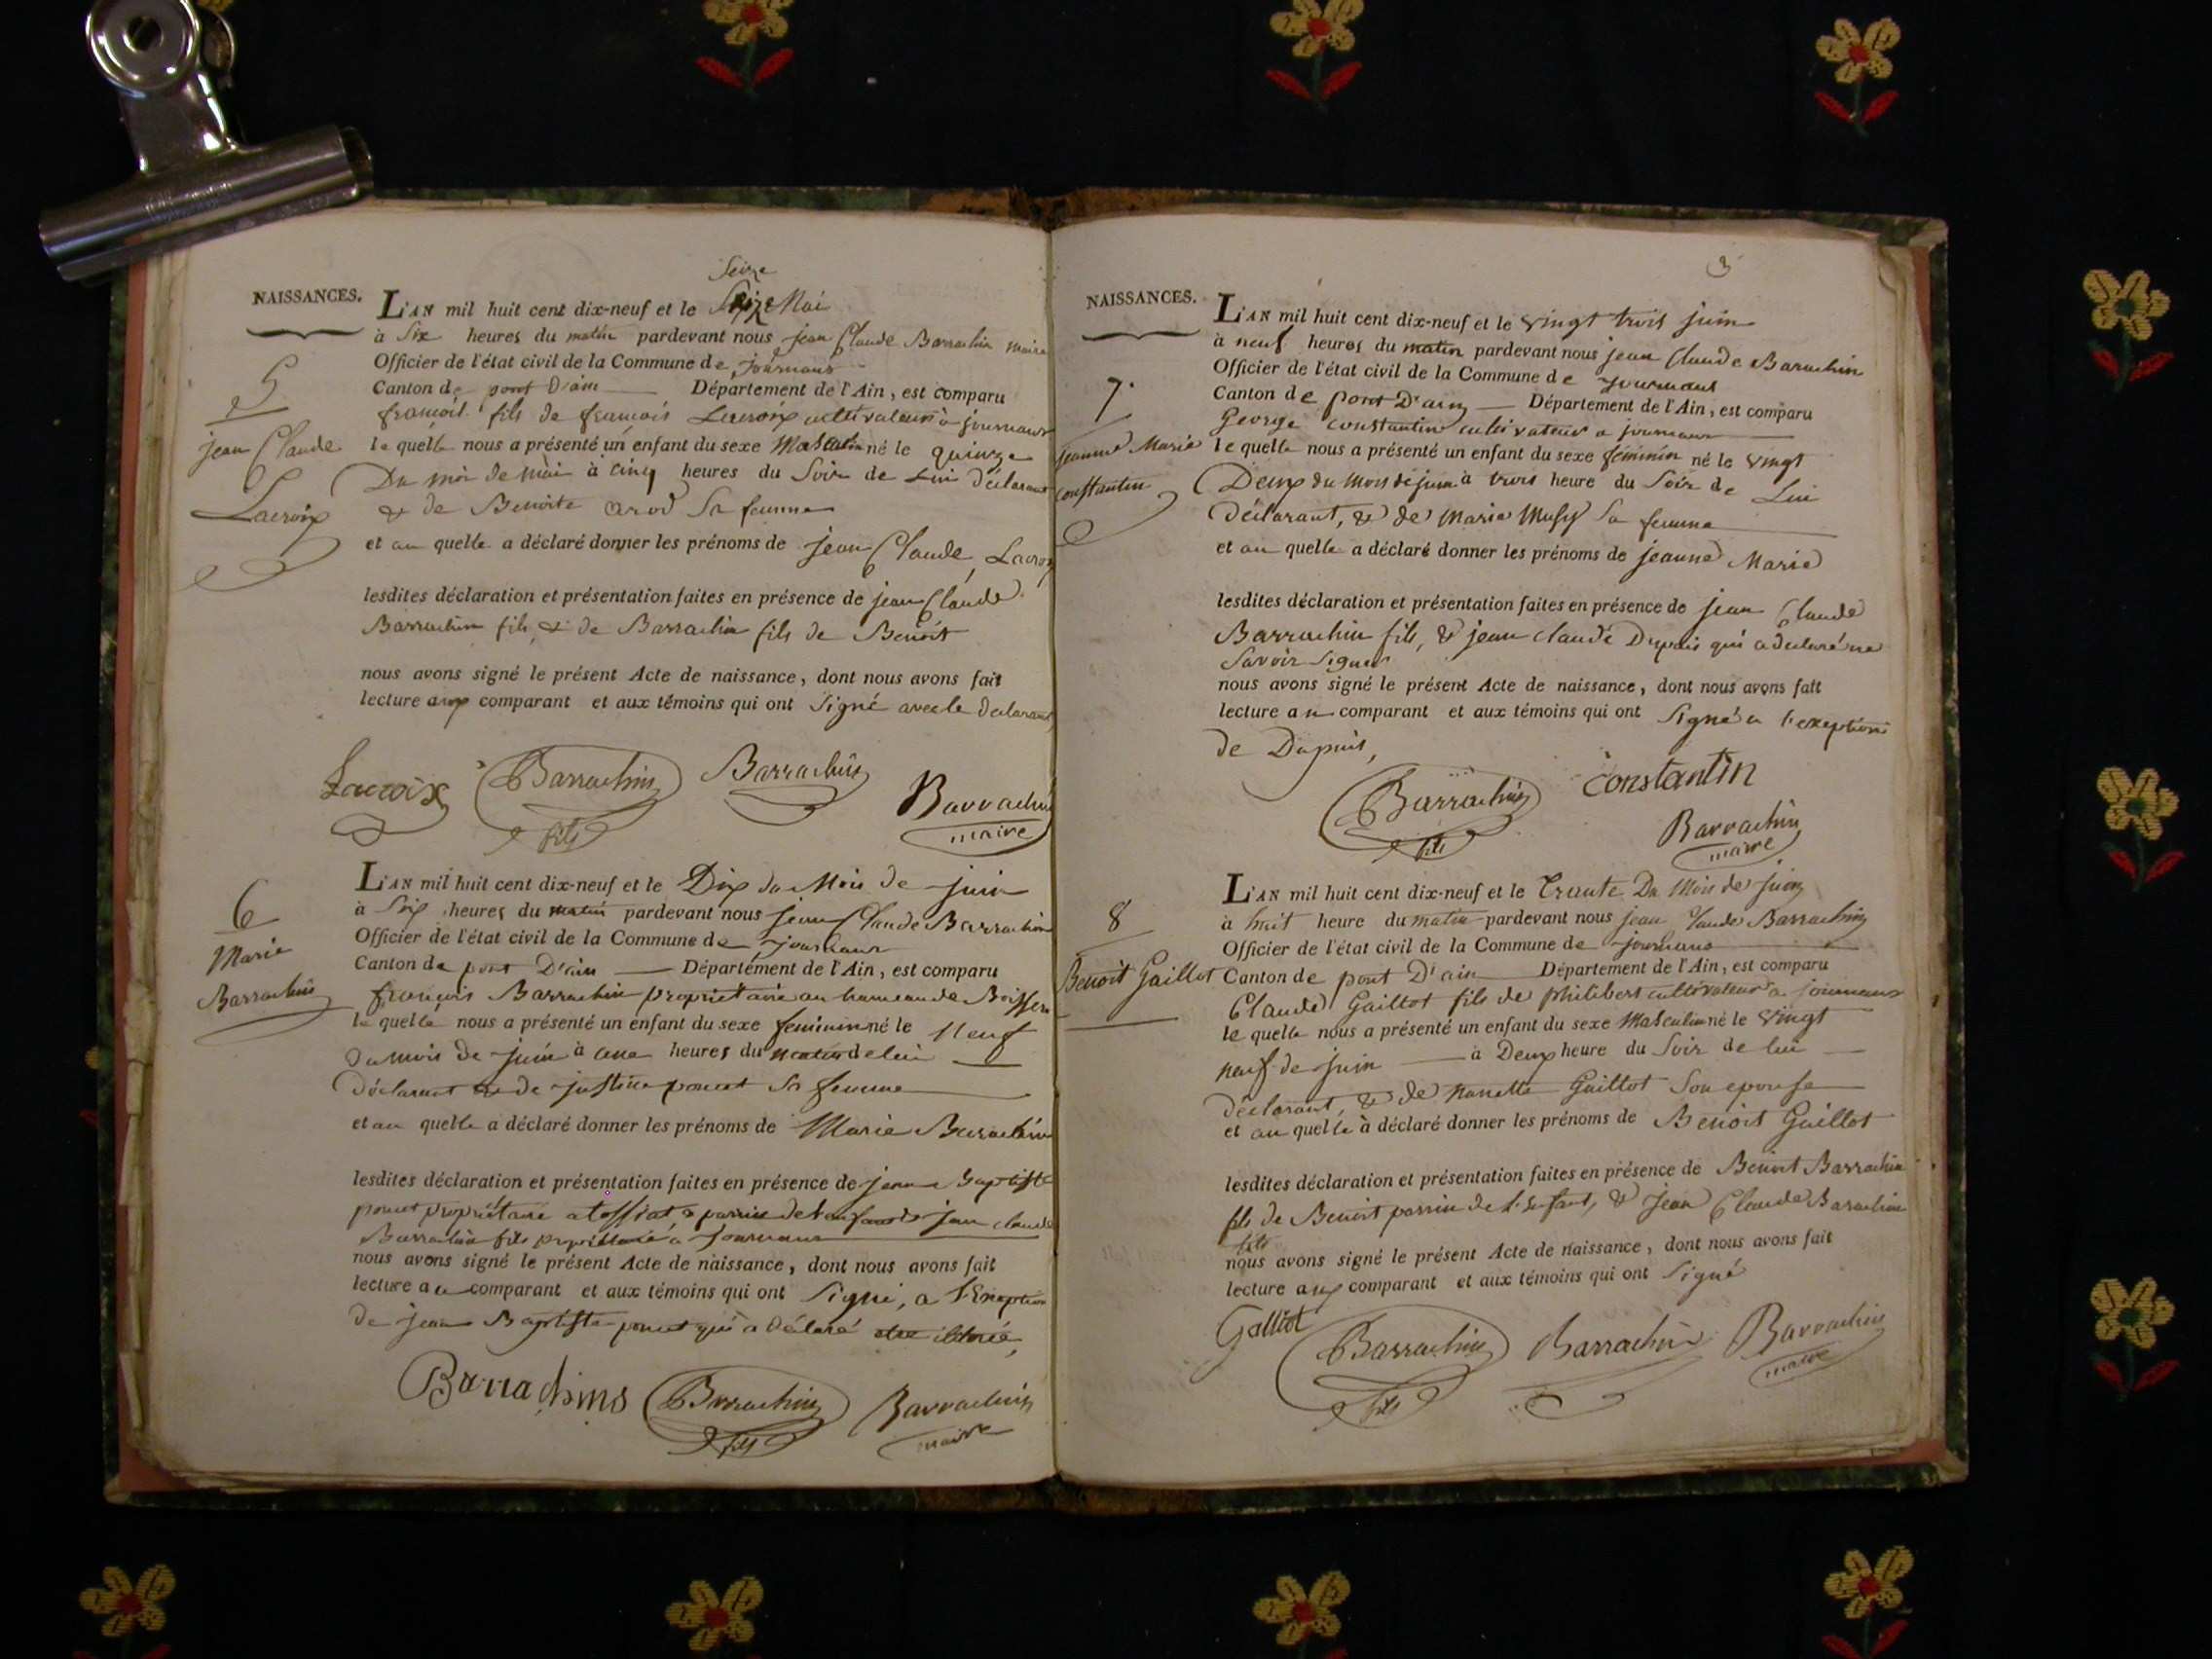 NAISSANCES.
5
jean Claude
Lacroix
Seize
L'AN mil huit cent dix-neuf et le Seize Mai
à Six heures du matin pardevant nous jean Claude Barrachin maire
Officier de l'état civil de la Commune de journans
Canton de pont D'ain Département de l'Ain, est comparu
françois fils de françois Lacroix cultivateur à journans
le quelle nous a présenté un enfant du sexe Masculin né le quinze
Du moi de mai à cinq heures du Soir de Lui déclarant
& de Benoite arod Sa femme
et au quelle a déclaré donner les prénoms de jean Claude Lacroix
lesdites déclaration et présentation faites en présence de jean Claude
Barrachin fils & de Barrachin fils de Benoit
nous avons signé le présent Acte de naissance, dont nous avons fait
lecture aux comparant et aux témoins qui ont Signé avec le declarant
Lacroix Barrachin fils Barrachin Barrachin maire
6
Marie
Barrachin
L'AN mil huit cent dix-neuf et le Dix du Mois de juin
à Six heures du matin pardevant nous jean Claude Barrachin
Officier de l'état civil de la Commune de journans
Canton de pont D'ain Département de l'Ain, est comparu
françois Barrachin propriétaire au hameau de
le quelle nous a présenté un enfant du sexe feminin né le Neuf
du mois de juin à une heures du matin de lui
déclarant & de justine poncet Sa femme
et au quelle a déclaré donner les prénoms de Marie Barachin
lesdites déclaration et présentation faites en présence de jean Baptiste
poncet propriétaire a tossiat parrin de l'enfant & jean claude
Barrachin fils propriétaire à journans
nous avons signé le présent Acte de naissance, dont nous avons fait
lecture au comparant et aux témoins qui ont Signé, a l'Exeption
de jean Baptiste poncet qui a déclaré etre
Barrachins Barrachin fils Barrachin maire
3
NAISSANCES.
7.
jeanne Marie
Constantin
L'AN mil huit cent dix-neuf et le vingt trois juin
à neuf heures du matin pardevant nous jean Claude Barrachin
Officier de l'état civil de la Commune de journans
Canton de pont D'ain Département de l'Ain, est comparu
George Constantin cultivateur a journans
le quelle nous a présenté un enfant du sexe féminin né le vingt
Deux du mois de juin à trois heure du Soir de Lui
déclarant, & de Marie Musy sa femme
et au quelle a déclaré donner les prénoms de jeanne Marie
lesdites déclaration et présentation faites en présence de jean Claude
Barrachin fils, & jean claude Dupuis qui a declaré ne
Savoir Signer
nous avons signé le présent Acte de naissance, dont nous avons fait
lecture au comparant et aux témoins qui ont Signé a l'exeption
de Dupuis,
Barrachin fils Constantin Barrachin maire
8
Benoit Gaillot
L'AN mil huit cent dix-neuf et le trante Du Mois de juin
à huit heure du matin pardevant nous jean Claude Barrachin
Officier de l'état civil de la Commune de journans
Canton de pont D'ain Département de l'Ain, est comparu
Claude Gaillot fils de philibert cultivateur a journans
le quelle nous a présenté un enfant du sexe Masculin né le vingt
neuf de juin à Deux heure du Soir de lui
déclarant, & de nanette Gaillot Son epouse
et au quelle à déclaré donner les prénoms de Benoit Gaillot
lesdites déclaration et présentation faites en présence de Benoit Barrachin
fils de Benoit parrin de l'enfant, & jean Claude Barachin
fils
nous avons signé le présent Acte de naissance, dont nous avons fait
lecture aux comparant et aux témoins qui ont Signé
Galliot Barrachin fils Barrachin Barrachin maire